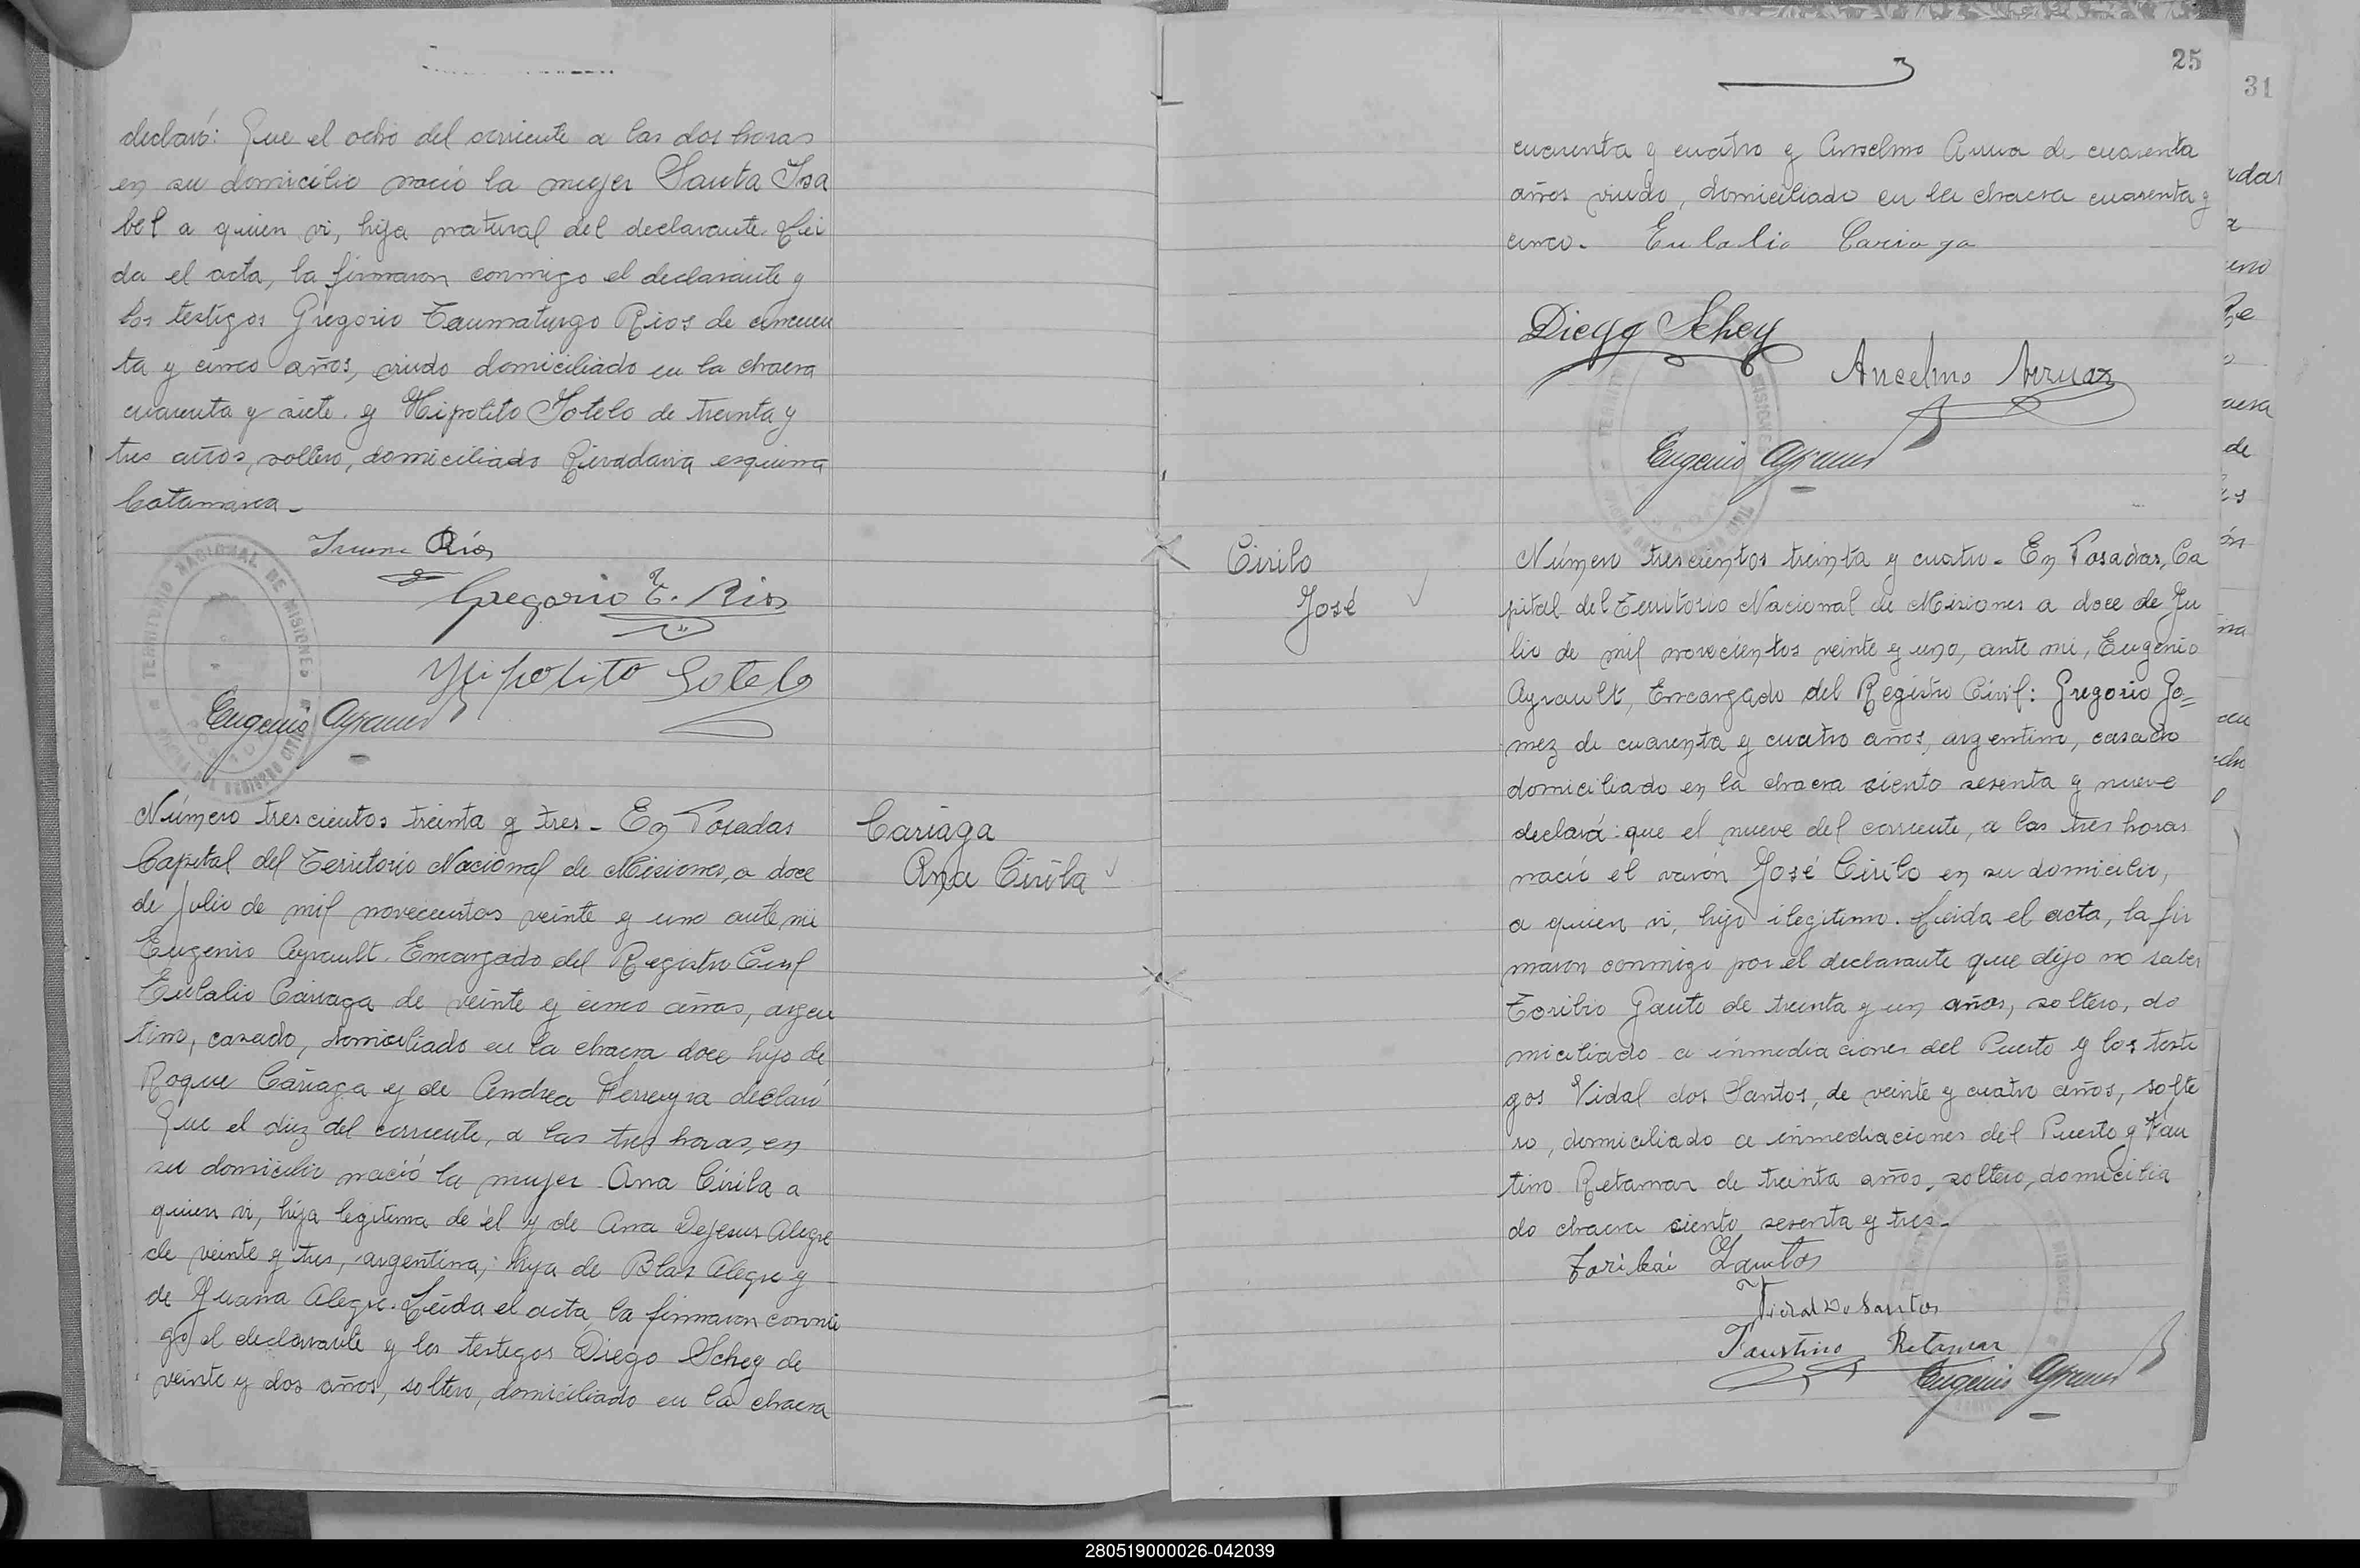 declaró: Que el ocho del corriente a las dos horas
en su domicilio nació la mujer Santa Isa
bel a quien vi, hija natural del declarante. Leí
da el acta, la firmaron conmigo el declarante y
los testigos Gregorio Taumaturgo Rios de cincuen
ta y cinco años, viudo domiciliado en la chacra
cuarenta y siete. y Hipolito Sotelo de treinta y
tres años, soltero, domiciliado Rivadavia esquina
Catamarca.
Ríos
Gregorio T. Rios
Hipolito Sotelo
Eugenio Ayrault
Número trescientos treinta y tres - En Posadas
Capital del Territorio Nacional de Misiones, a doce
de Julio de mil novecientos veinte y uno ante mi
Eugenio Ayrault. Encargado del Registro Civil
Eulalio Cariaga de veinte y cinco años, argen
tino, casado, domiciliado en la chacra doce hijo de
Roque Cariaga y de Andrea Ferreyra declaró
Que el diez del corriente, a las tres horas, en
su domicilio nació la mujer Ana Cirila a
quien vi, hija legitima de él y de Ana DeJesus Alegre
de veinte y tres, argentina, hija de Blas Alegre y
de Juana Alegre. Leída el acta, la firmaron conmi
go el declarante y los testigos Diego Schey de
veinte y dos años, soltero, domiciliado en la chacra
Cariaga
Ana Cirila
25
31
cuarenta y cuatro y Anselmo de cuarenta
años viudo, domiciliado en la chacra cuarenta y
cinco. Eulalio Cariaga
Diego Schey
Anselmo
Eugenio Ayrault
Cirilo
José
Número trescientos treinta y cuatro. En Posadas, Ca
pital del Territorio Nacional de Misiones a doce de Ju
lio de mil novecientos veinte y uno, ante mi, Eugenio
Ayrault, Encargado del Registro Civil: Gregorio Go=
mez de cuarenta y cuatro años, argentino, casado
domiciliado en la chacra siento sesenta y nueve
declará: que el nueve del corriente, a las tres horas
nació el varón José Cirilo en su domicilio,
a quien vi, hijo ilegitimo. Leida el acta, la fir
maron conmigo por el declarante que dijo no saber
Toribio Gauto de treinta y un años, soltero, do
miciliado a inmediaciones del Puerto y los testi
gos Vidal dos Santos, de veinte y cuatro años, solte
ro, domiciliado a inmediaciones del Puerto y Fau
tino Retamar de treinta años, soltero, domicilia
do chacra siento sesenta y tres.
Vidal Do Santos
Faustino Retamar
Eugenio Ayrault
280519000026-042039